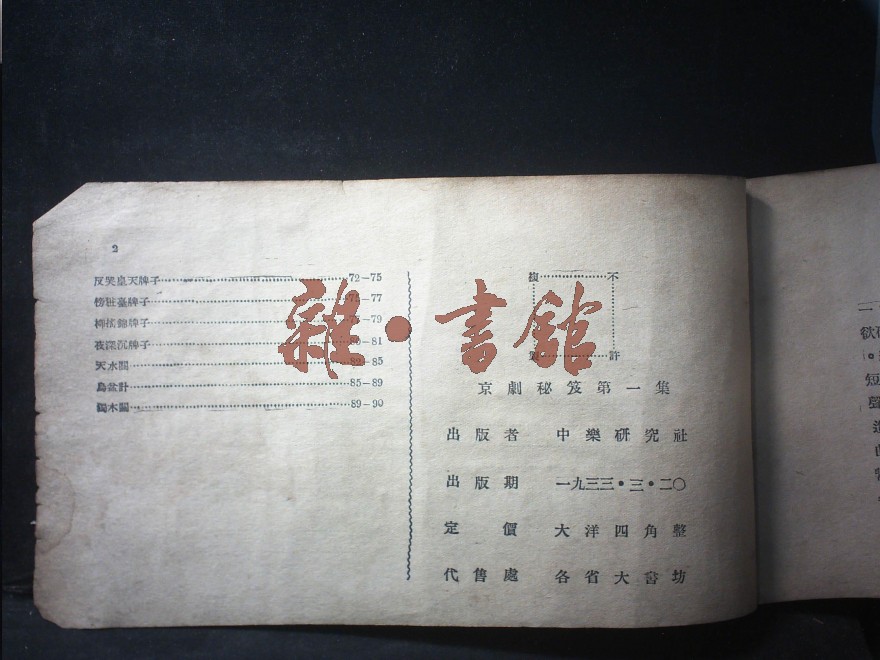 2
反哭皇天牌子 72-75
傍粧臺牌子 75-77
柳搖錦牌子 79
夜深沉牌子 80-81
天水關 82-85
烏盆計 85-89
獨木關 89-90
不許複製
京劇秘笈第一集
出版者 中樂研究社
出版期 一九三三·三·二〇
定價 大洋四角整
代售處 各省大書坊
雜·書館